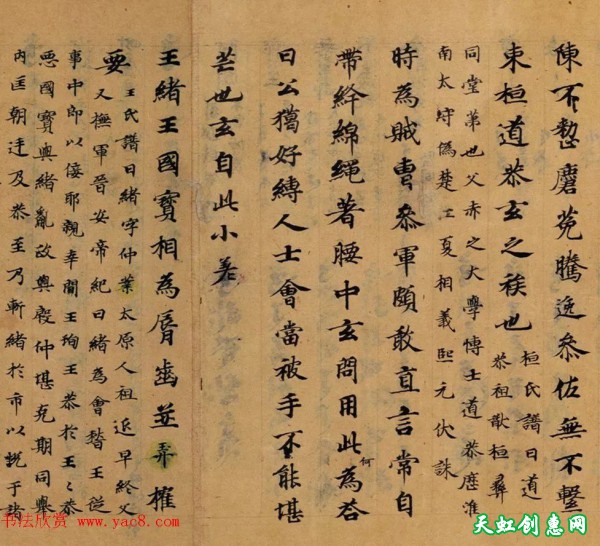 陳不整麏菟騰逸參佐無不繫
束桓道恭玄之族也
桓氏譜曰道
恭祖猷桓彝
同堂弟也父赤之大學博士道恭歷淮
南太守偽楚江夏相義熙元伏誅
時為賊曹參軍頗敢直言常自
帶絳綿繩著腰中玄問用此為何荅
曰公獦好縛人士會當被手不能堪
芒也玄自此小差
王緒王國寶相為脣齒並弄權
要
王氏譜曰緒字仲業太原人祖延早終父
乂撫軍晉安帝紀曰緒為會稽王從
事中郎以佞邪親幸間王珣王恭於王〻恭
惡國寶與緒亂政與殷仲堪克期同舉
內匡朝廷及恭至乃斬緒於市以說于諸
书法欣赏 www.yac8.com
天虹创惠网